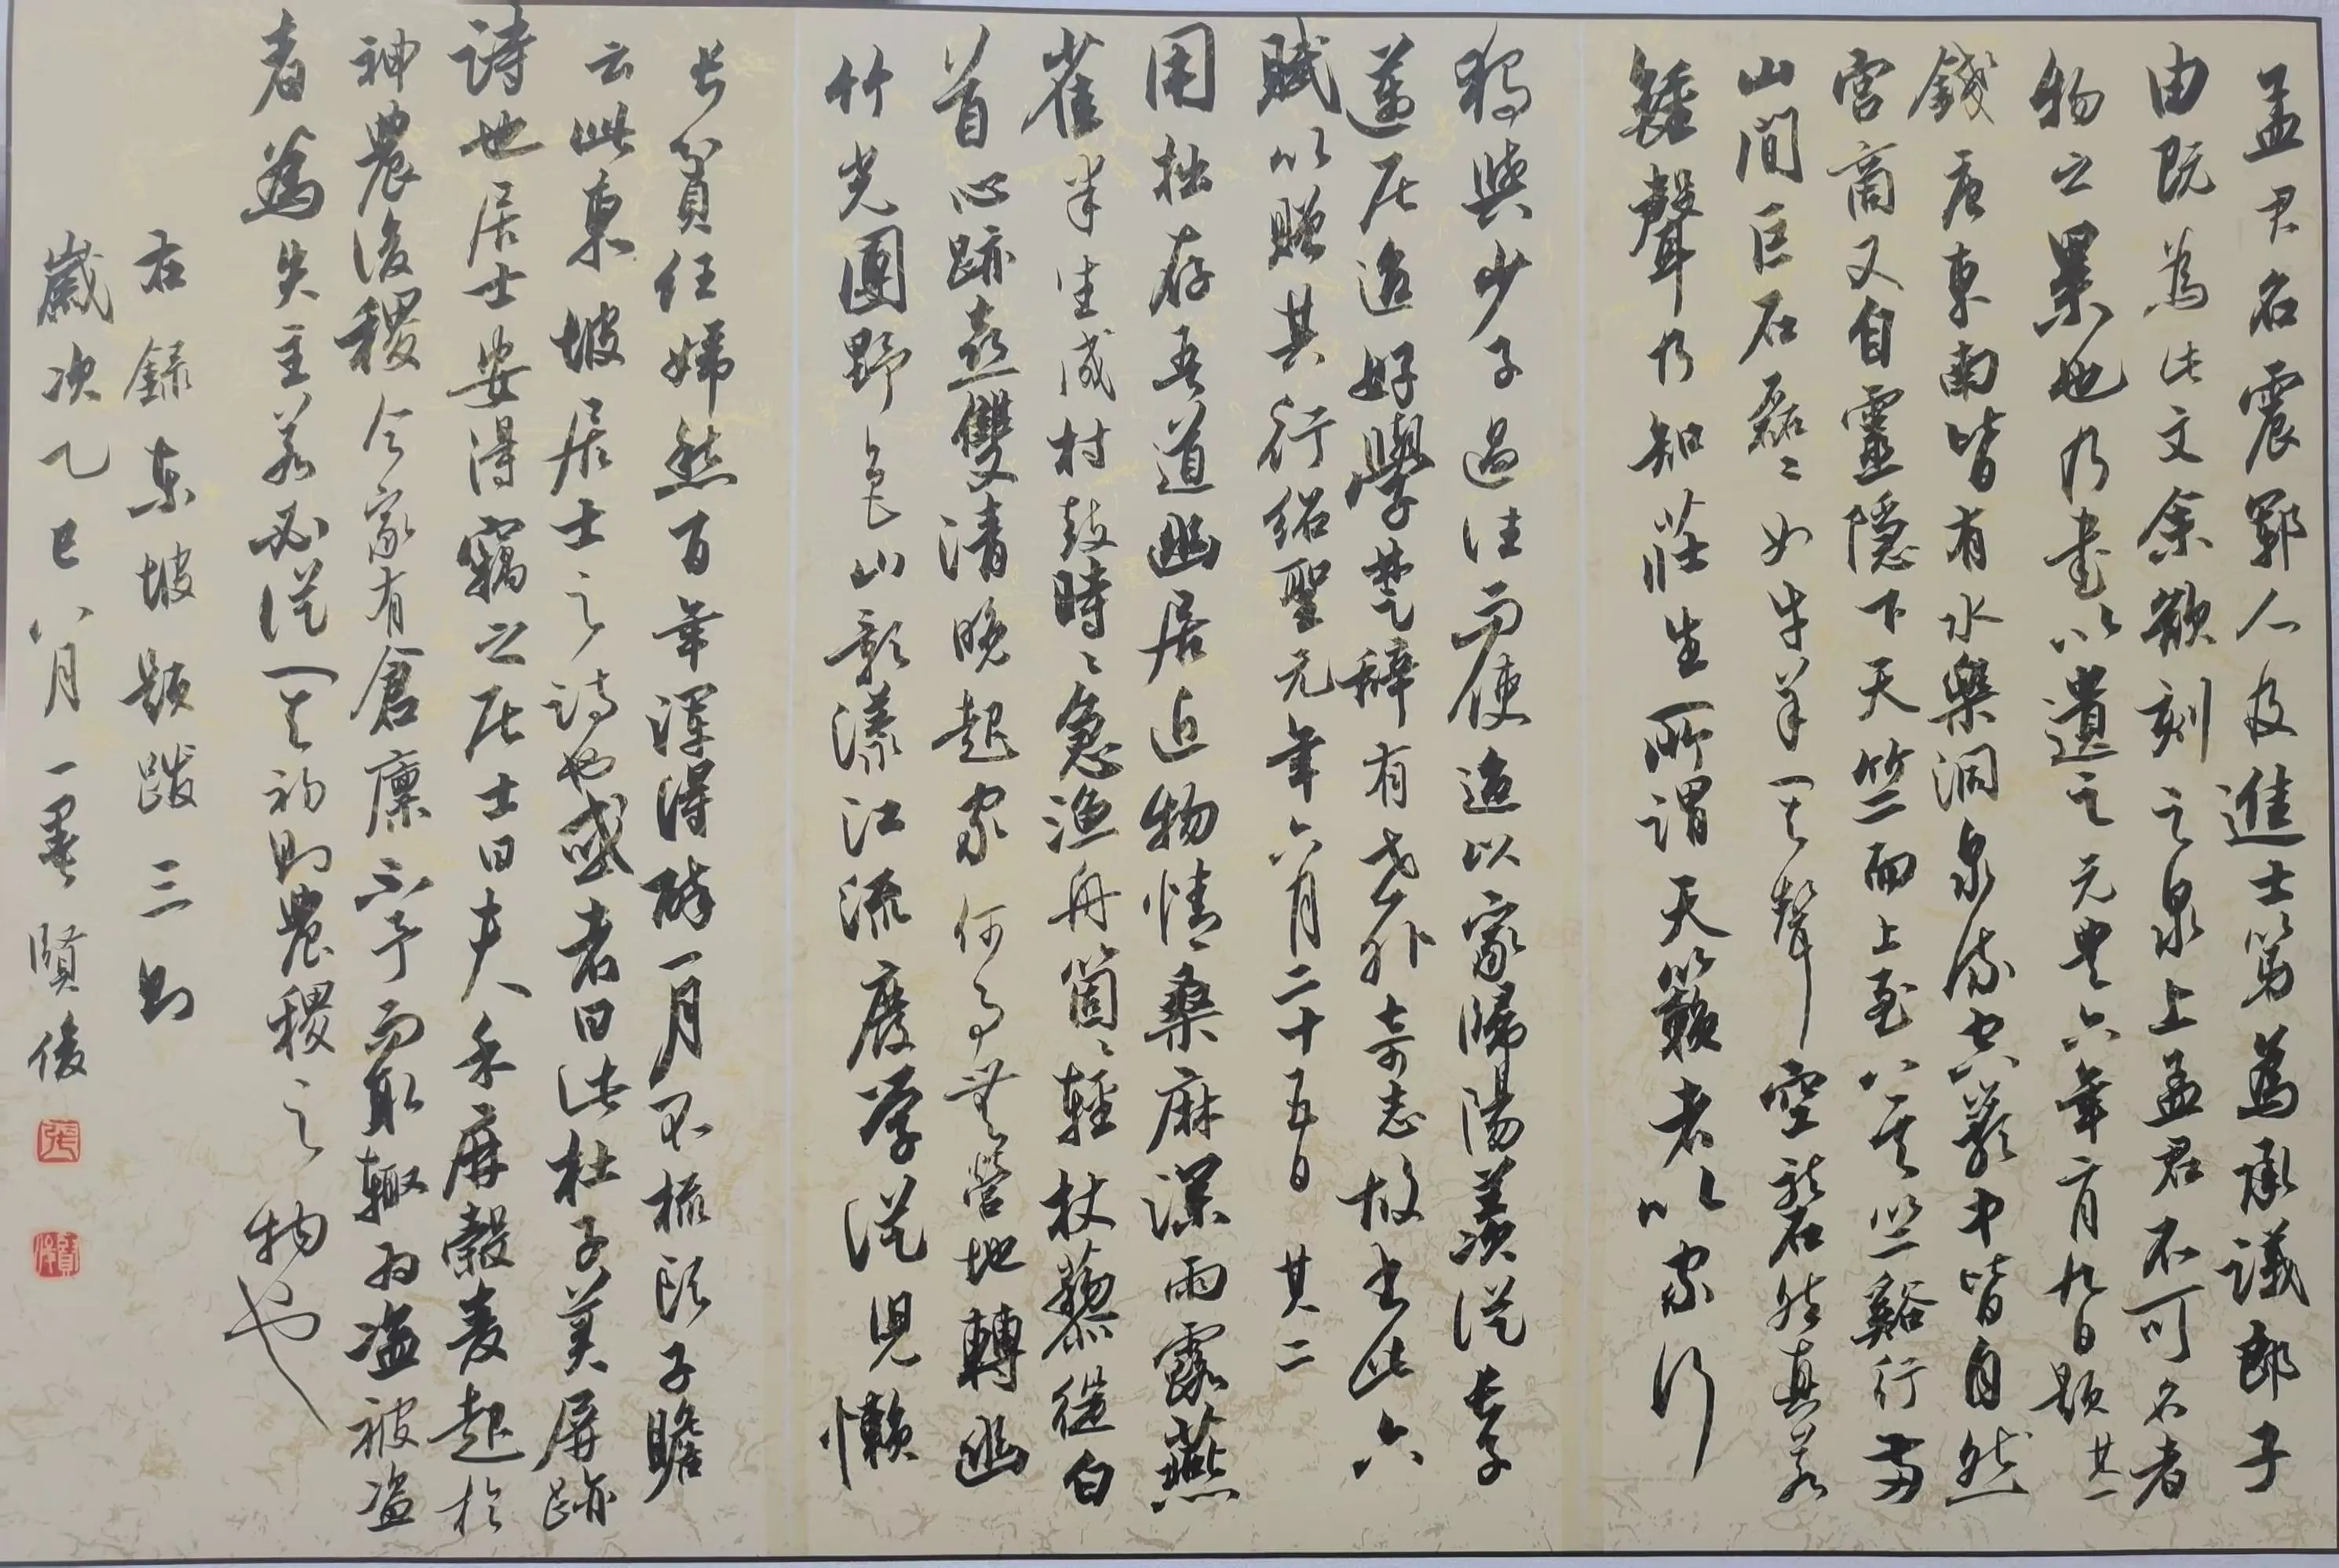 孟君名震鄆人及進士第為承議郎子
由既為此文余欲刻之泉上孟君不可名者
物之累也乃書以遺之元豊六年育九日題其一
錢唐東南皆有水樂洞泉流空巖中皆自然
宮商又自靈隱下天竺而上至八天竺谿行兩
山間巨石磊々如牛羊其聲空礱然真若
鍾聲乃知莊生所謂天籟者以家行
獨與少子過往而使迨以家歸陽羨從長子
邁居迨好學楚辭有世外奇志故書此六
賦以贈其行紹聖元年六月二十五日其二
用拙存吾道幽居近物情桑麻深雨露燕
雀半生成村鼓時々急漁舟箇々輕杖藜從白
首心跡喜雙清晚起家何事無營地轉幽
竹光團野色山影漾江流廢學從兒懶
長貧任婦愁百年渾得醉一月不梳頭子瞻
云此東坡居士之詩也或者曰此杜子美屏跡
詩也居士安得竊之居士曰夫禾麻穀麦起於
神農後稷今家有倉廩不予而取輒為盗被盗
者為失主若必從其初則農稷之物也
右録東坡題跋三則
歲次乙巳八月一墨賢俊